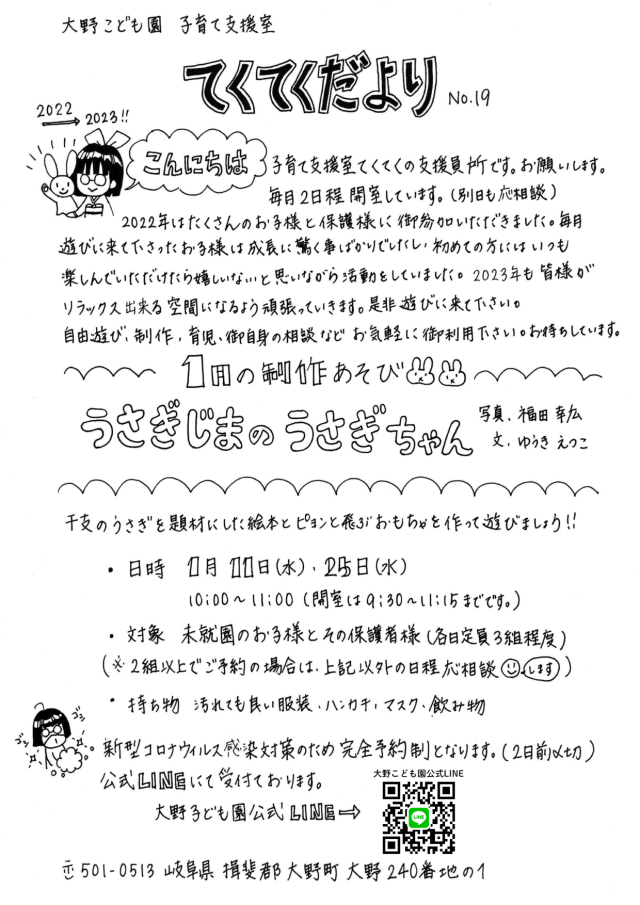 大野こども園 子育て支援室
てくてくだより No.19
2022 → 2023!!
こんにちは
子育て支援室てくてくの支援員 所です。お願いします。
毎月2日程開室しています。(別日も応相談)
2022年はたくさんのお子様と保護様に御参加いただきました。毎月
遊びに来て下さったお子様は成長に驚く事ばかりでしたし、初めての方にはいつも
楽しんでいただけたら嬉しいな、と思いながら活動をしていました。2023年も皆様が
リラックス出来る空間になるよう頑張っていきます。是非遊びに来て下さい。
自由遊び、制作、育児、御自身の相談など お気軽に御利用下さい。お待ちしています。
1月の制作あそび
うさぎじまのうさぎちゃん
写真、福田幸広
文、ゆうき えつこ
干支のうさぎを題材にした絵本とピョンと飛ぶおもちゃを作って遊びましょう!!
・日時 1月11日(水)、25日(水)
10:00〜11:00 (開室は9:30〜11:15までです。)
・対象 未就園のお子様とその保護者様(各日定員3組程度)
(※2組以上でご予約の場合は、上記以外の日程応相談します)
・持ち物 汚れても良い服装、ハンカチ、マスク、飲み物
ゴシ
ゴシ
新型コロナウィルス感染対策のため完全予約制となります。(2日前〆切)
公式LINEにて受付ております。
大野こども園公式LINE
大野こども園公式LINE→
LINE
〒501-0513 岐阜県 揖斐郡 大野町 大野 240番地の1